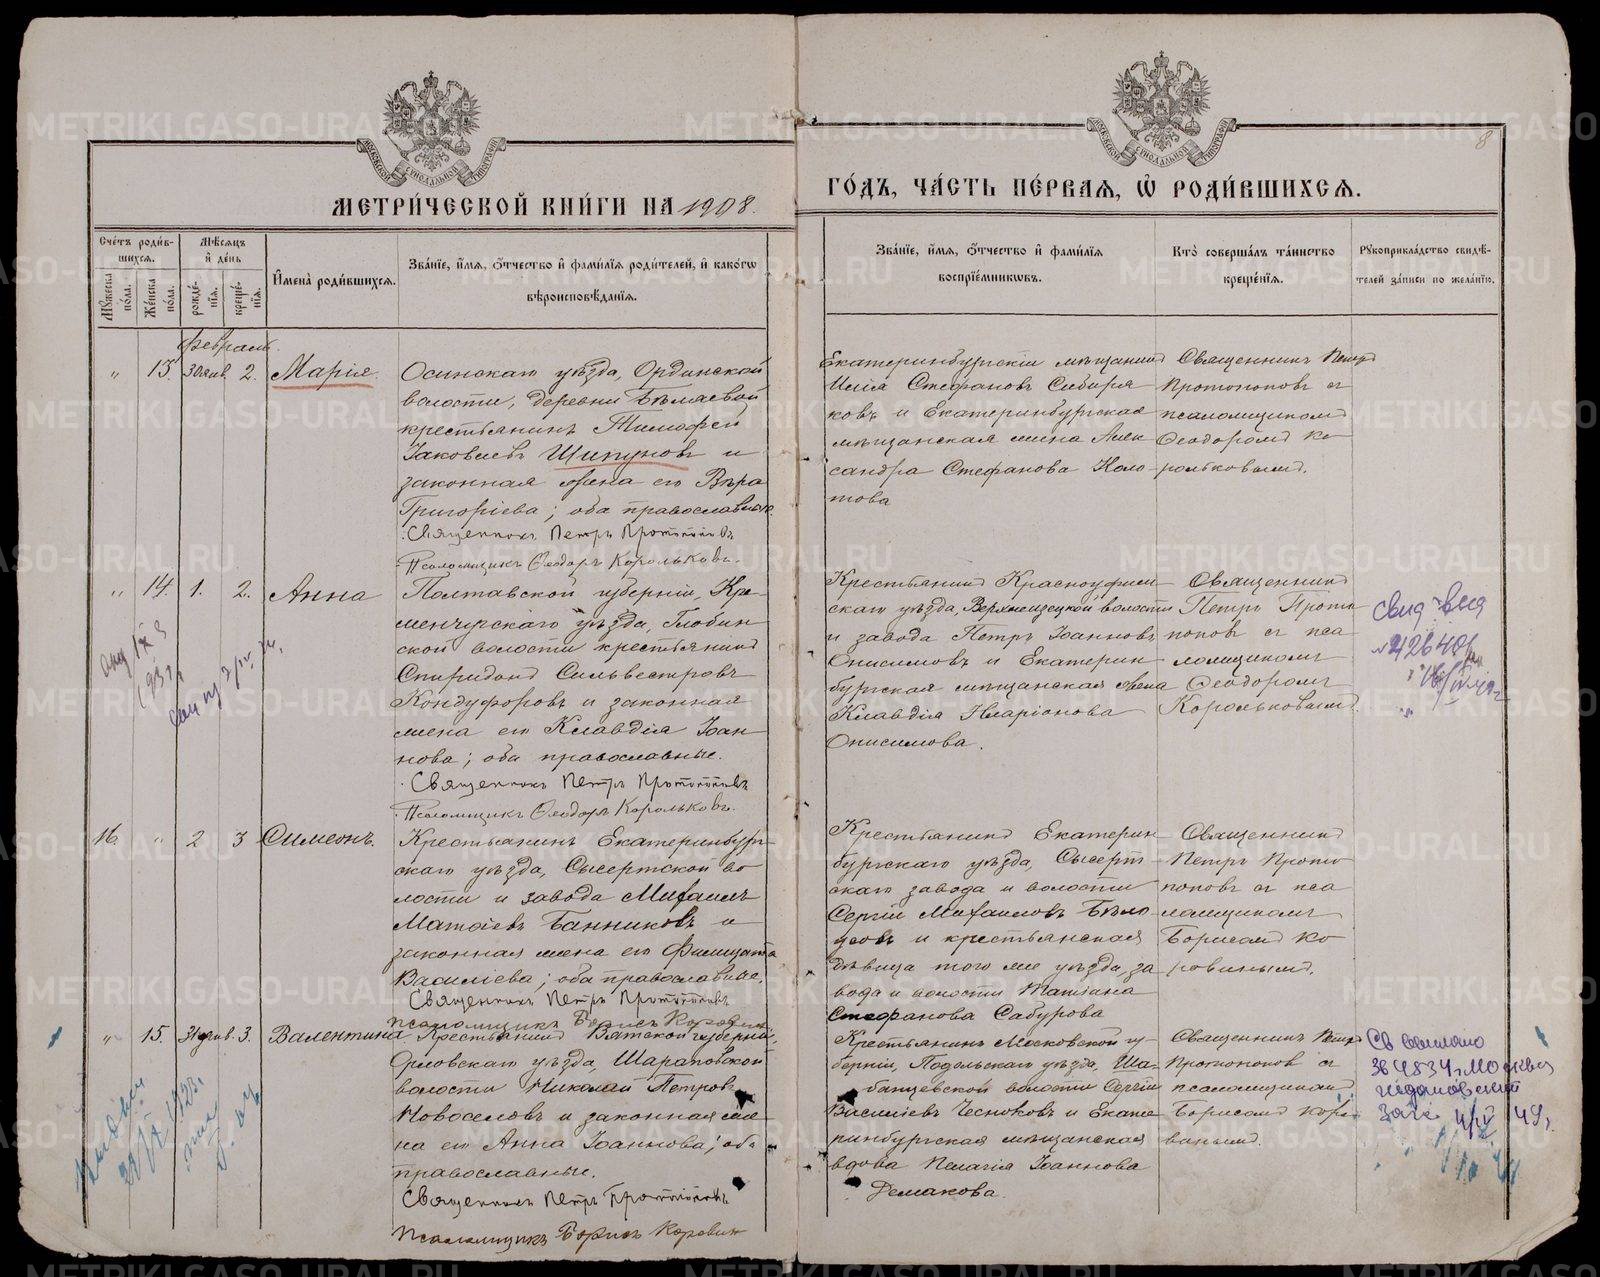 МЕТРИ́ЧЕСКОЙ КНИ́ГИ НА 1908.
ГО́ДЪ, ЧА́СТЬ ПЕ́РВАЯ, Ѡ҆ РОДИ́ВШИХСЯ.
8
Сче́тъ роди́в-
шихся.
Му́жеска
по́ла.
Же́нска
по́ла.
Мѣ́сяцъ
и҆ де́нь
рожде́-
нїя.
креще́-
нїя.
И҆мена̀ роди́вшихся.
Зва́нїе, и҆́мя, ѻ҆́тчество и҆ фами́лїя роди́телей, и҆ како́гѡ
вѣроисповѣ́данїя.
Зва́нїе, и҆́мя, ѻ҆́тчество и҆ фами́лїя
воспрїе́мниковъ.
Кто̀ соверша́лъ та́инство
креще́нїя.
Рꙋкоприкла́дство свидѣ́-
телей за́писи по жела́нїю.
Февраль.
" 13. 30 янв. 2. Марія.
Осинскаго уѣзда, Ординской
волости, деревни Бѣляевой
крестьянинъ Тимофей
Іаковлевъ Шипуновъ и
законная жена его Вѣра
Григоріева; оба православные.
Священникъ Петръ Протопоповъ
Псаломщикъ Ѳеодоръ Корольковъ.
Екатеринбургскій мѣщанинъ
Илія Стефановъ Сибиря
ковъ и Екатеринбургская
мѣщанская жена Алек
сандра Стефанова Коло
това
Священникъ Петръ
Протопоповъ съ
псаломщикомъ
Ѳеодоромъ Ко
рольковымъ.
" 14. 1. 2. Анна
Полтавской губерніи, Кре-
менчугскаго уѣзда, Глобин
ской волости крестьянинъ
Спиридонъ Сильвестровъ
Кондуфоровъ и законная
жена его Клавдія Іоан
нова; оба православные.
Священникъ Петръ Протопоповъ
Псаломщикъ Ѳеодоръ Корольковъ.
Крестьянинъ Красноуфим
скаго уѣзда, волости
и завода Петръ Іоанновъ
Онисимовъ и Екатерин
бургская мѣщанская жена
Клавдія Иларіонова
Онисимова.
Священникъ
Петръ Прото
поповъ съ пса
ломщикомъ
Ѳеодоромъ
Корольковымъ.
16. " 2 3 Симеонъ.
Крестьянинъ Екатеринбург
скаго уѣзда, Сысертской во
лости и завода Михаилъ
Матѳіевъ Банниковъ и
законная жена его Филицата
Василіева; оба православные.
Священникъ Петръ Протопоповъ
псаломщикъ Борисъ Коровинъ
Крестьянинъ Екатерин
бургскаго уѣзда, Сысерт
скаго завода и волости
Сергій Михаиловъ Бѣло
усовъ и крестьянская
дѣвица того же уѣзда, за
вода и волости Татіана
Стефанова Сабурова
Священникъ
Петръ Прото
поповъ съ пса
ломщикомъ
Борисомъ Ко
ровинымъ.
" 15. 31 янв. 3. Валентина
Крестьянинъ Вятской губерніи,
Орловскаго уѣзда, Шараповской
волости Николай Петровъ
Новоселовъ и законная же
на его Анна Іоаннова; оба
православные.
Священникъ Петръ Протопоповъ
псаломщикъ Борисъ Коровинъ
Крестьянинъ Московской гу
берніи, Подольскаго уѣзда, Ша-
банцевской волости Сергій
Василіевъ Чесноковъ и Екате
ринбургская мѣщанская
вдова Пелагія Іоаннова
Демакова.
Священникъ Петръ
Протопоповъ съ
псаломщикомъ
Борисомъ Коро
винымъ.
Св выслано
364834 г. Москва